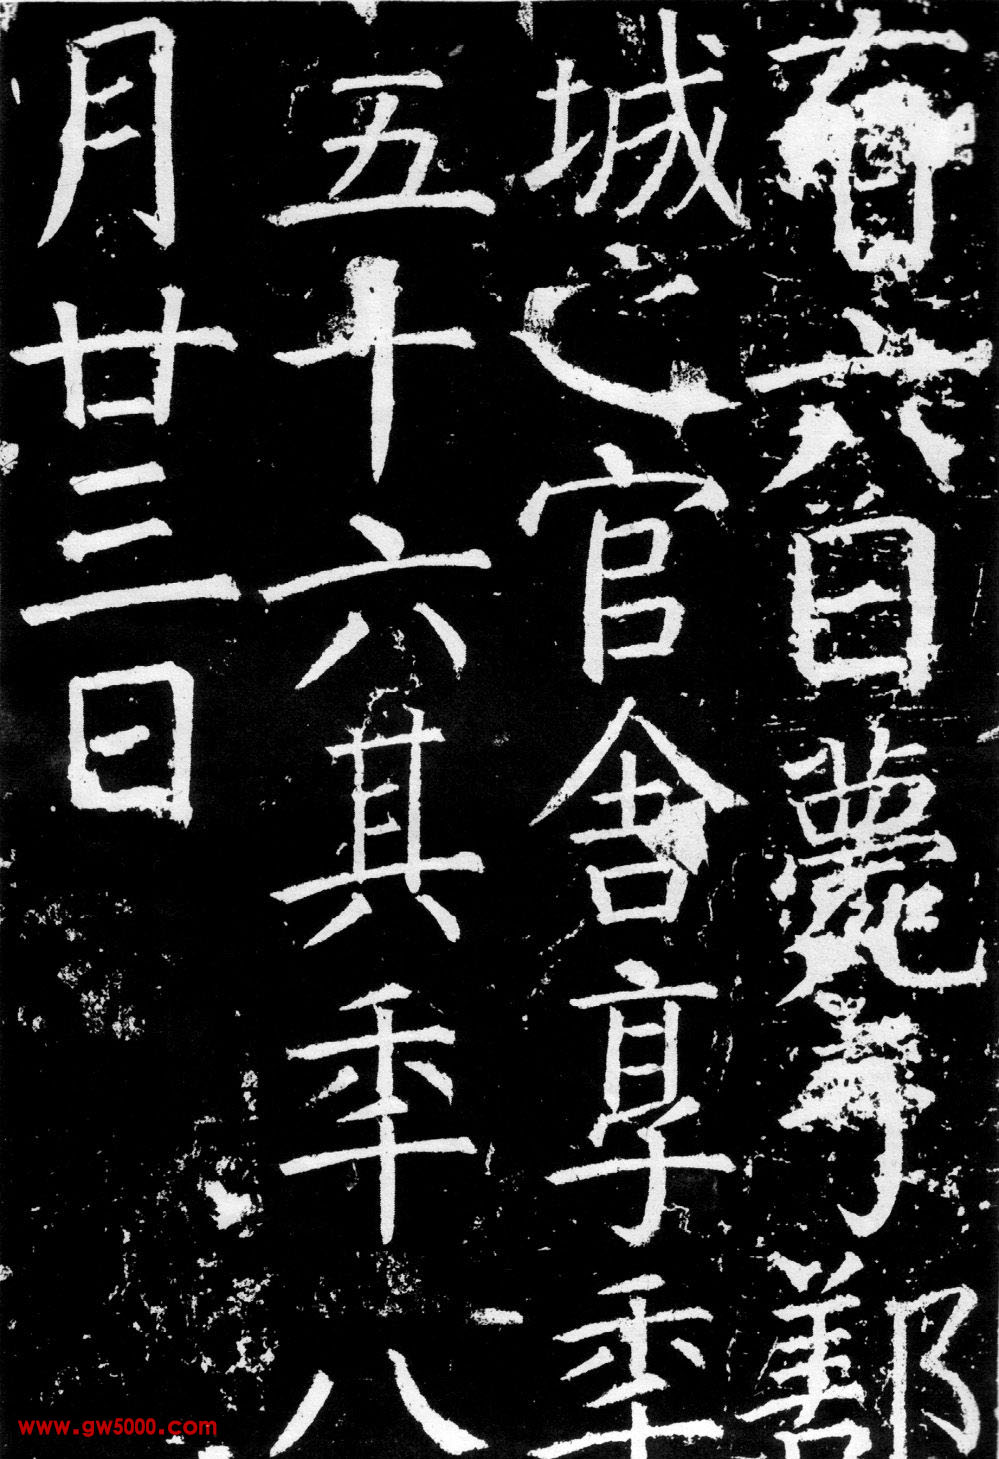 有六日薨于鄯
城之官舍享年
五十六其年八
月廿三日
www.gw5000.com